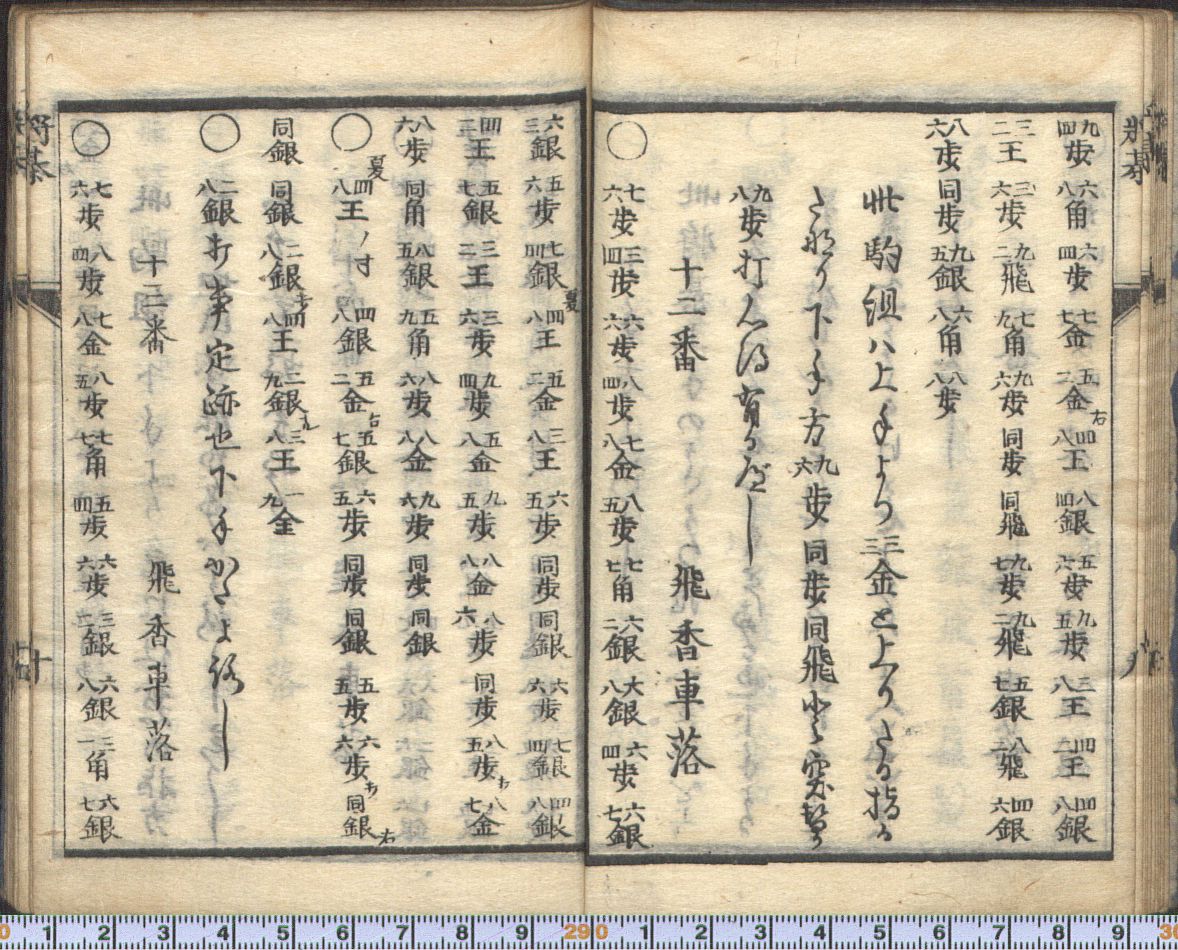 九四歩 六八角 六四歩 七七金 五二金右 四八王 八四銀 五六歩 九五歩 三八王 四二王 四八銀
三二王 三六歩 九二飛 七九角 九六歩 同歩 同飛 九七歩 九二飛 五七銀 八二飛 四六銀
八六歩 同歩 九五銀 六八角 八八歩
此駒組ハ上手より三三金と上りたる指る
下手方九六歩同歩同飛
九八歩打
十二番 飛香車落
○ 七六歩 三四歩 六六歩 八四歩 七八金 八五歩 七七角 六二銀 六八銀 六四歩 六七銀
六三銀 五六歩 七四銀 四八王 五二金 三八王 六五歩 同歩 同銀 六六歩 七四銀 四八銀
四二王 五七銀 三二王 三六歩 九四歩 五八金 九五歩 八八金 八六歩 同歩 八五歩打 八七金
八六歩 同角 八五銀 五九角 八六歩 八八金 九六歩 同歩 同銀
○ 四八王ノ寸 四八銀 五二金右 五七銀 六五歩 同歩 同銀 五五歩 六六歩打 同銀右
同銀 同銀 二八銀打 四八王 二九銀成 三八王 一九金
○ 二八銀打事定跡也下手かたよ路し
十三番 飛香車落
○ 七六歩 八四歩 七八金 八五歩 七七角 五四歩 六六歩 三二銀 六八銀 三一角 六七銀